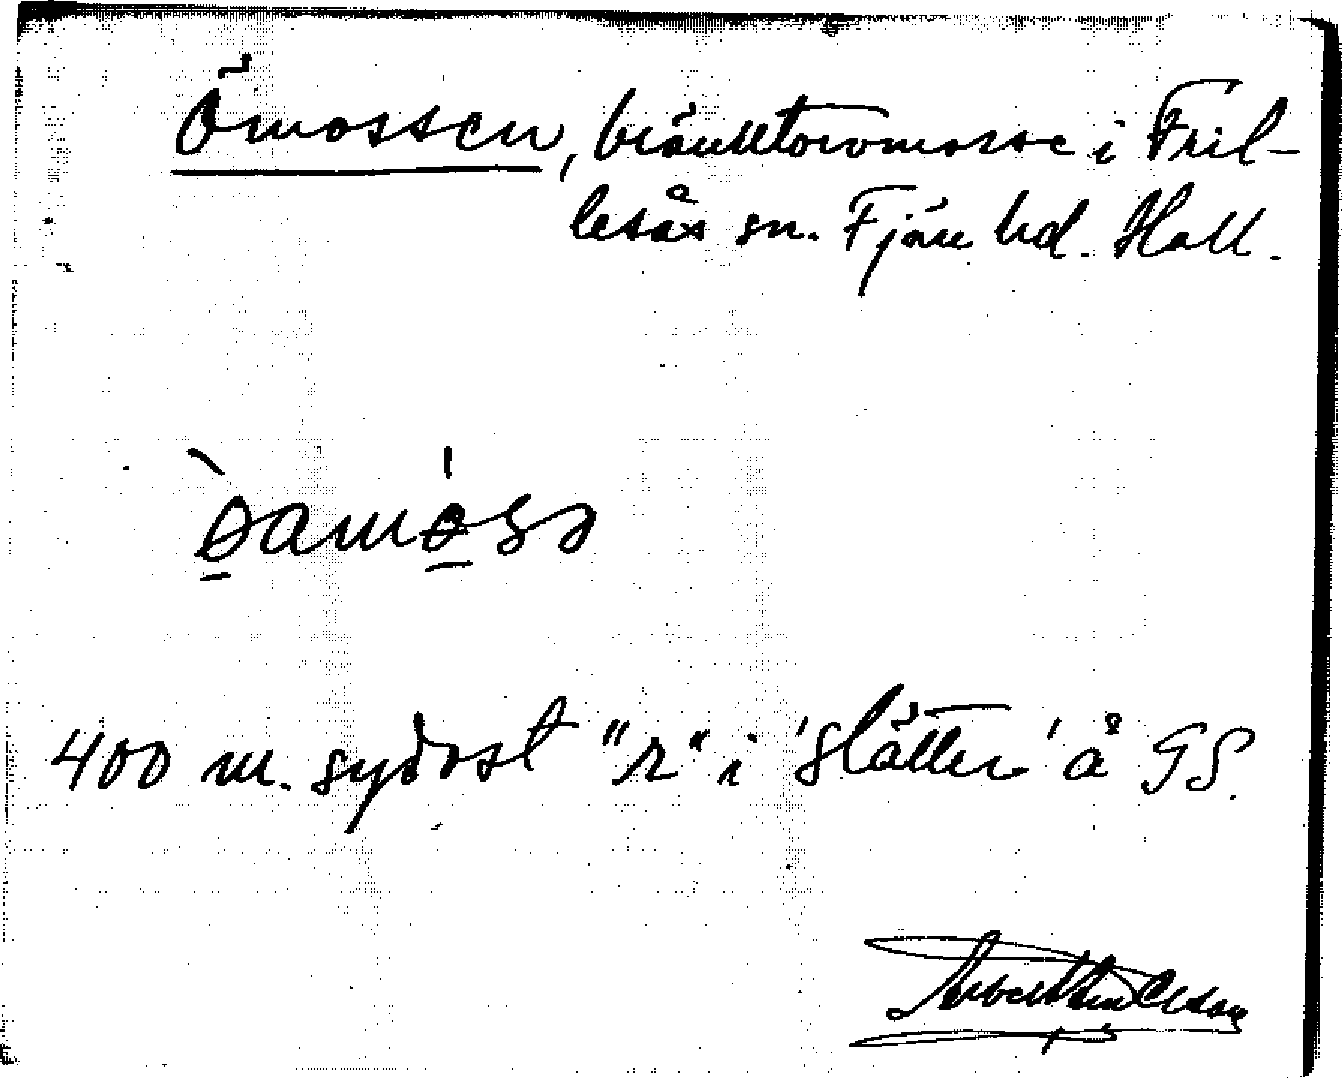 Ömossen, bränntorvmosse i Fril-
lesås sn. Fjäre hd. Hall.
400 m. sydost "r" i 'Slätten' å GS.